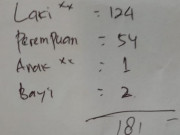 Laki xx = 124
Perempuan = 54
Anak xx = 1
Bayi = 2
181 =